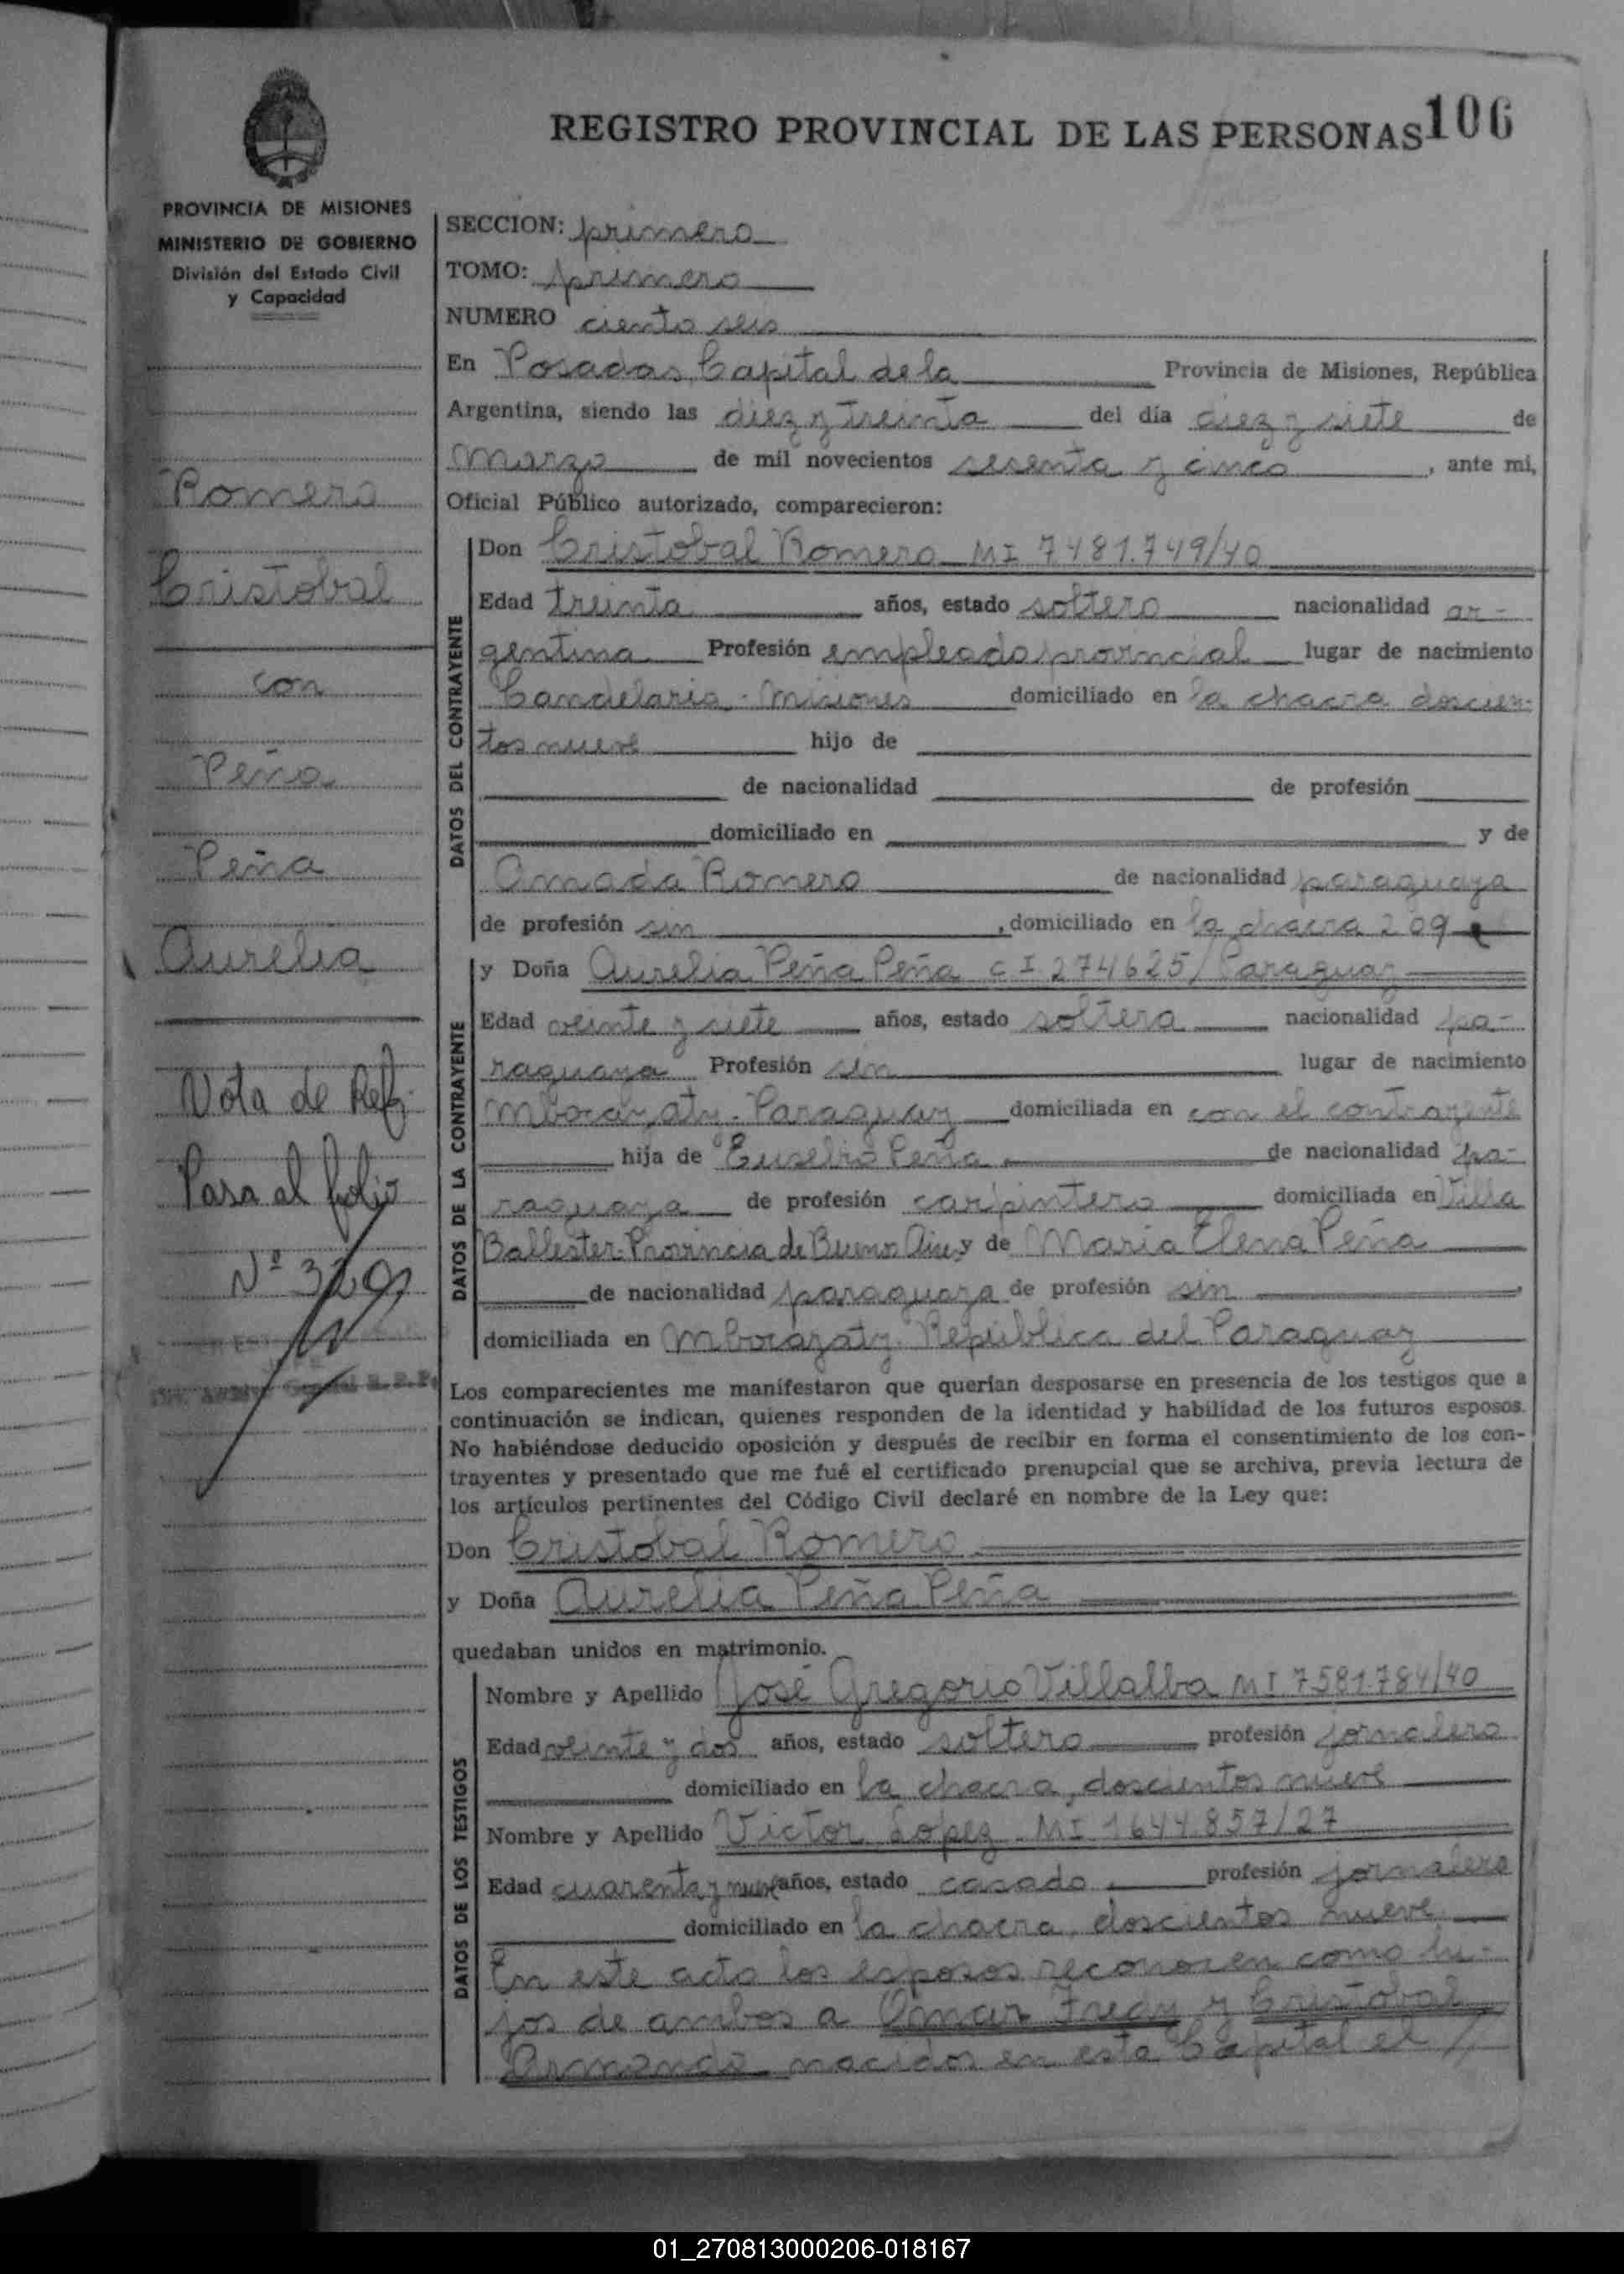 REGISTRO PROVINCIAL DE LAS PERSONAS 106
PROVINCIA DE MISIONES
MINISTERIO DE GOBIERNO
División del Estado Civil
y Capacidad
Romero
Cristobal
con
Peña
Peña
Aurelia
Nota de Ref.
Pasa al folio
Nº
SECCION: primera
TOMO: primero
NUMERO ciento seis
En Posadas, Capital de la Provincia de Misiones, República
Argentina, siendo las diez y treinta del día diez y siete de
Marzo de mil novecientos sesenta y cinco, ante mi,
Oficial Público autorizado, comparecieron:
DATOS DEL CONTRAYENTE
Don Cristobal Romero MI 7481.749/40
Edad treinta años, estado soltero nacionalidad ar-
gentina Profesión empleado provincial lugar de nacimiento
Candelaria - Misiones domiciliado en la chacra doscien-
tos nueve hijo de
de nacionalidad de profesión
domiciliado en y de
Amada Romero de nacionalidad paraguaya
de profesión sin, domiciliado en la chacra 209
DATOS DE LA CONTRAYENTE
y Doña Aurelia Peña Peña C I 274625/Paraguay
Edad veinte y siete años, estado soltera nacionalidad pa-
raguaya Profesión sin lugar de nacimiento
Mbocayaty - Paraguay domiciliada en con el contrayente
hija de Eusebio Peña de nacionalidad pa-
raguaya de profesión carpintero domiciliada en Villa
Ballester - Provincia de Buenos Aires y de Maria Elena Peña
de nacionalidad paraguaya de profesión sin,
domiciliada en Mbocayaty República del Paraguay
Los comparecientes me manifestaron que querían desposarse en presencia de los testigos que a
continuación se indican, quienes responden de la identidad y habilidad de los futuros esposos.
No habiéndose deducido oposición y después de recibir en forma el consentimiento de los con-
trayentes y presentado que me fué el certificado prenupcial que se archiva, previa lectura de
los artículos pertinentes del Código Civil declaré en nombre de la Ley que:
Don Cristobal Romero
y Doña Aurelia Peña Peña
quedaban unidos en matrimonio.
DATOS DE LOS TESTIGOS
Nombre y Apellido José Gregorio Villalba MI 7581.784/40
Edad veinte y dos años, estado soltero profesión jornalero
domiciliado en la chacra, doscientos nueve
Nombre y Apellido Victor Lopez MI 1644.857/27
Edad cuarenta y nueve años, estado casado profesión jornalero
domiciliado en la chacra doscientos nueve
En este acto los esposos reconocen como hi-
jos de ambos a Omar Fredy y Cristobal
Armando nacidos en esta Capital el //
01_270813000206-018167